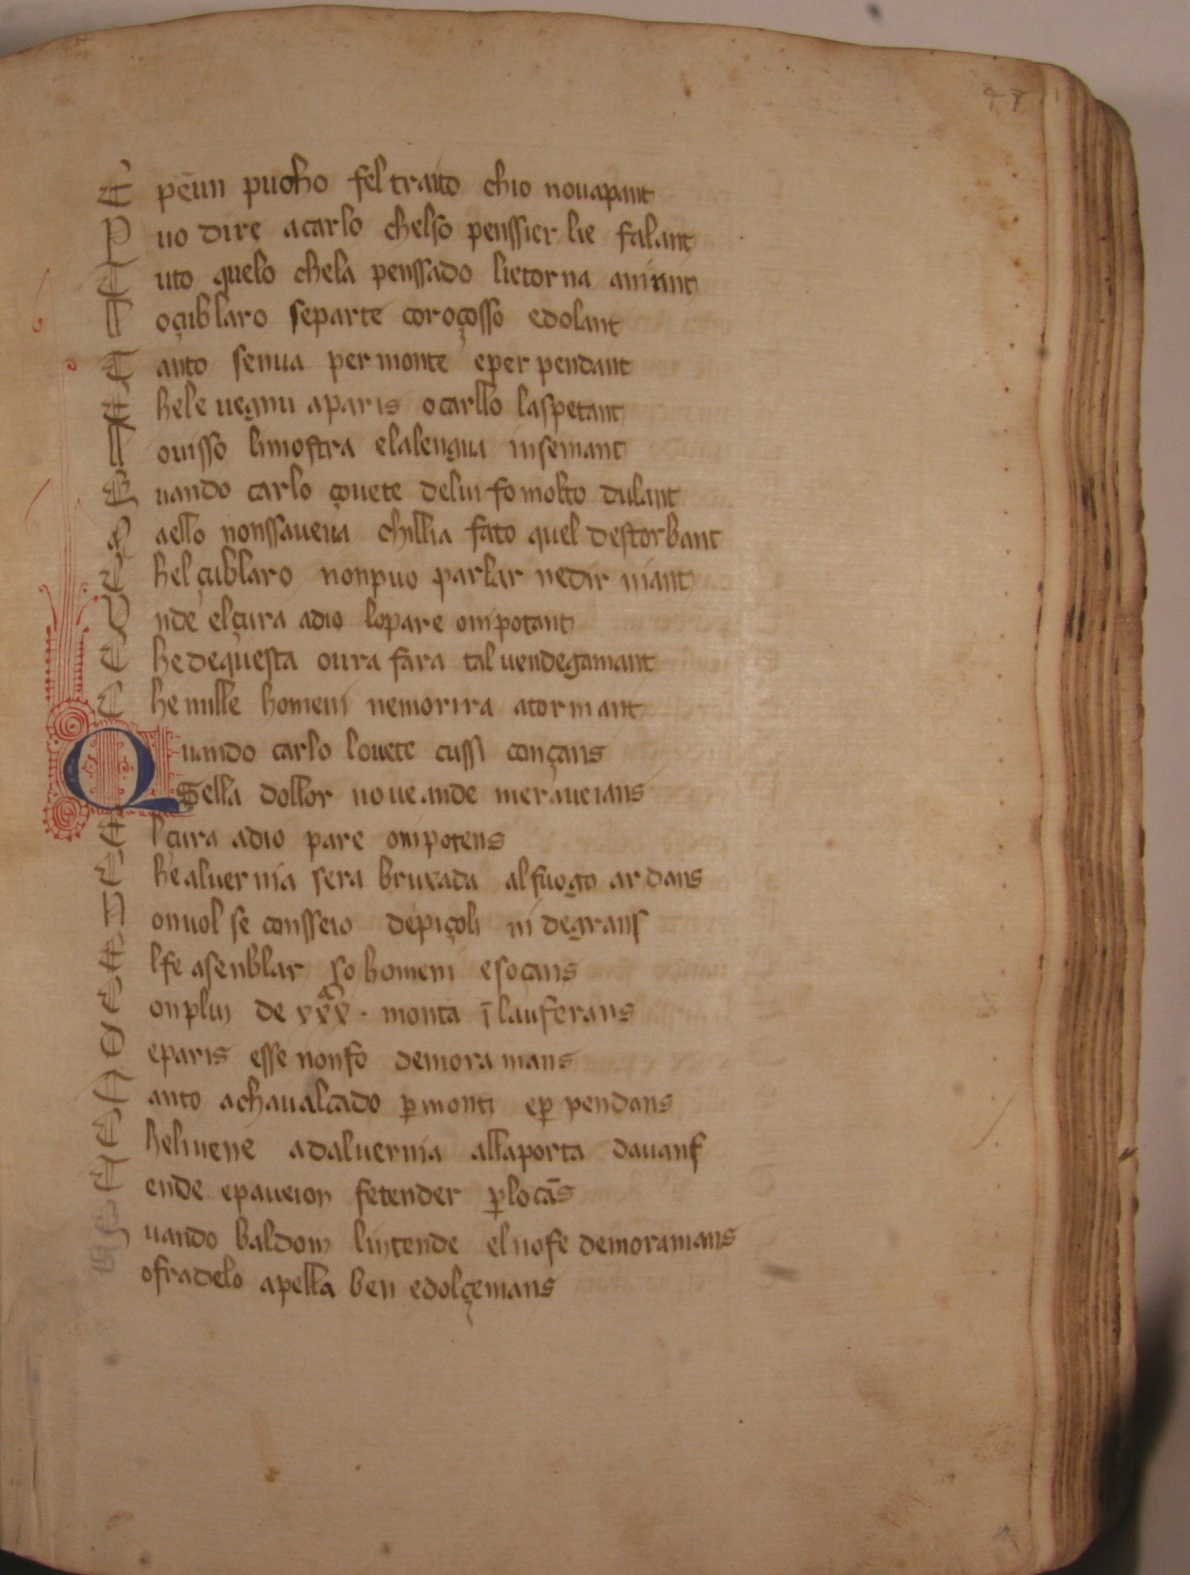 28
E pēun pucho fel traito chio novapant
P uo dire acarlo chelso penssier lie falant
T uto quelo chela penssado lietorna anīant
M oçublaro separte coroçosso edolant
T anto senua per monte eper pendant
C hele uegnu aparis o carllo laspetant
M ouisso limostra elalengua insemant
Q uando carlo çouete delui fo molto dulant
M aello nonssaueua chillia fato quel destorbant
C hel çublaro nonpuo parlar nedir niant
V nde elçura adio lopare onipotant
C he dequesta oura fara tal uendegamant
C he mille homeni nemorira atormant
Q uando carlo louete cussi conçans
Sella dollor no ueande meraueians
E lcura adio pare onipotens
C he aluernia sera bruxada alfuogo ardans
N onuol se consseio depiçoli ni degrans
E lfe asenblar so homeni esoçans
C onplui de xxx mᵃ monta ī lauferans
D eparis esse nonfe demoramans
T anto achaualcado ꝑmonti eꝑ pendans
C heliuene adaluernia allaporta dauans
T ende epaueion fetender ꝑlocās
Q uando baldoin lintende elnofe demoramans
S ofradelo apella ben edolçemans